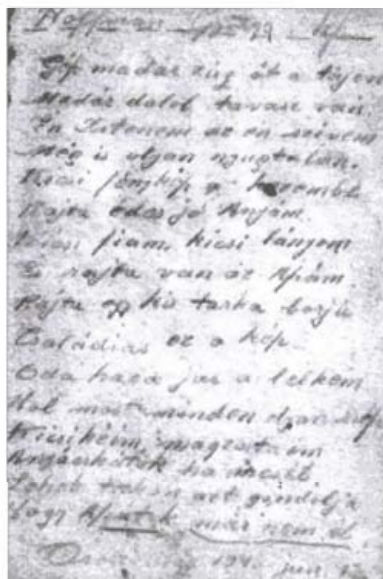 Gép madár zúg át a tájon
Madár dalol tavasz van.
Én Istenem az én szivem
Még is olyan nyugtalan.
Kicsi fénykép a kezembe
Rajta édes jó Anyám.
Kicsi fiam, kicsi lányom
És rajta van az Apám.
Rajta egy kis tarka borjú
Családias ez a kép.
Oda haza jár a lelkem
Hol most minden
Kicsikéim, magzataim
Anyácskátok ha mesél
azt gondolja
Hogy Apátok már nem él
194 jun.